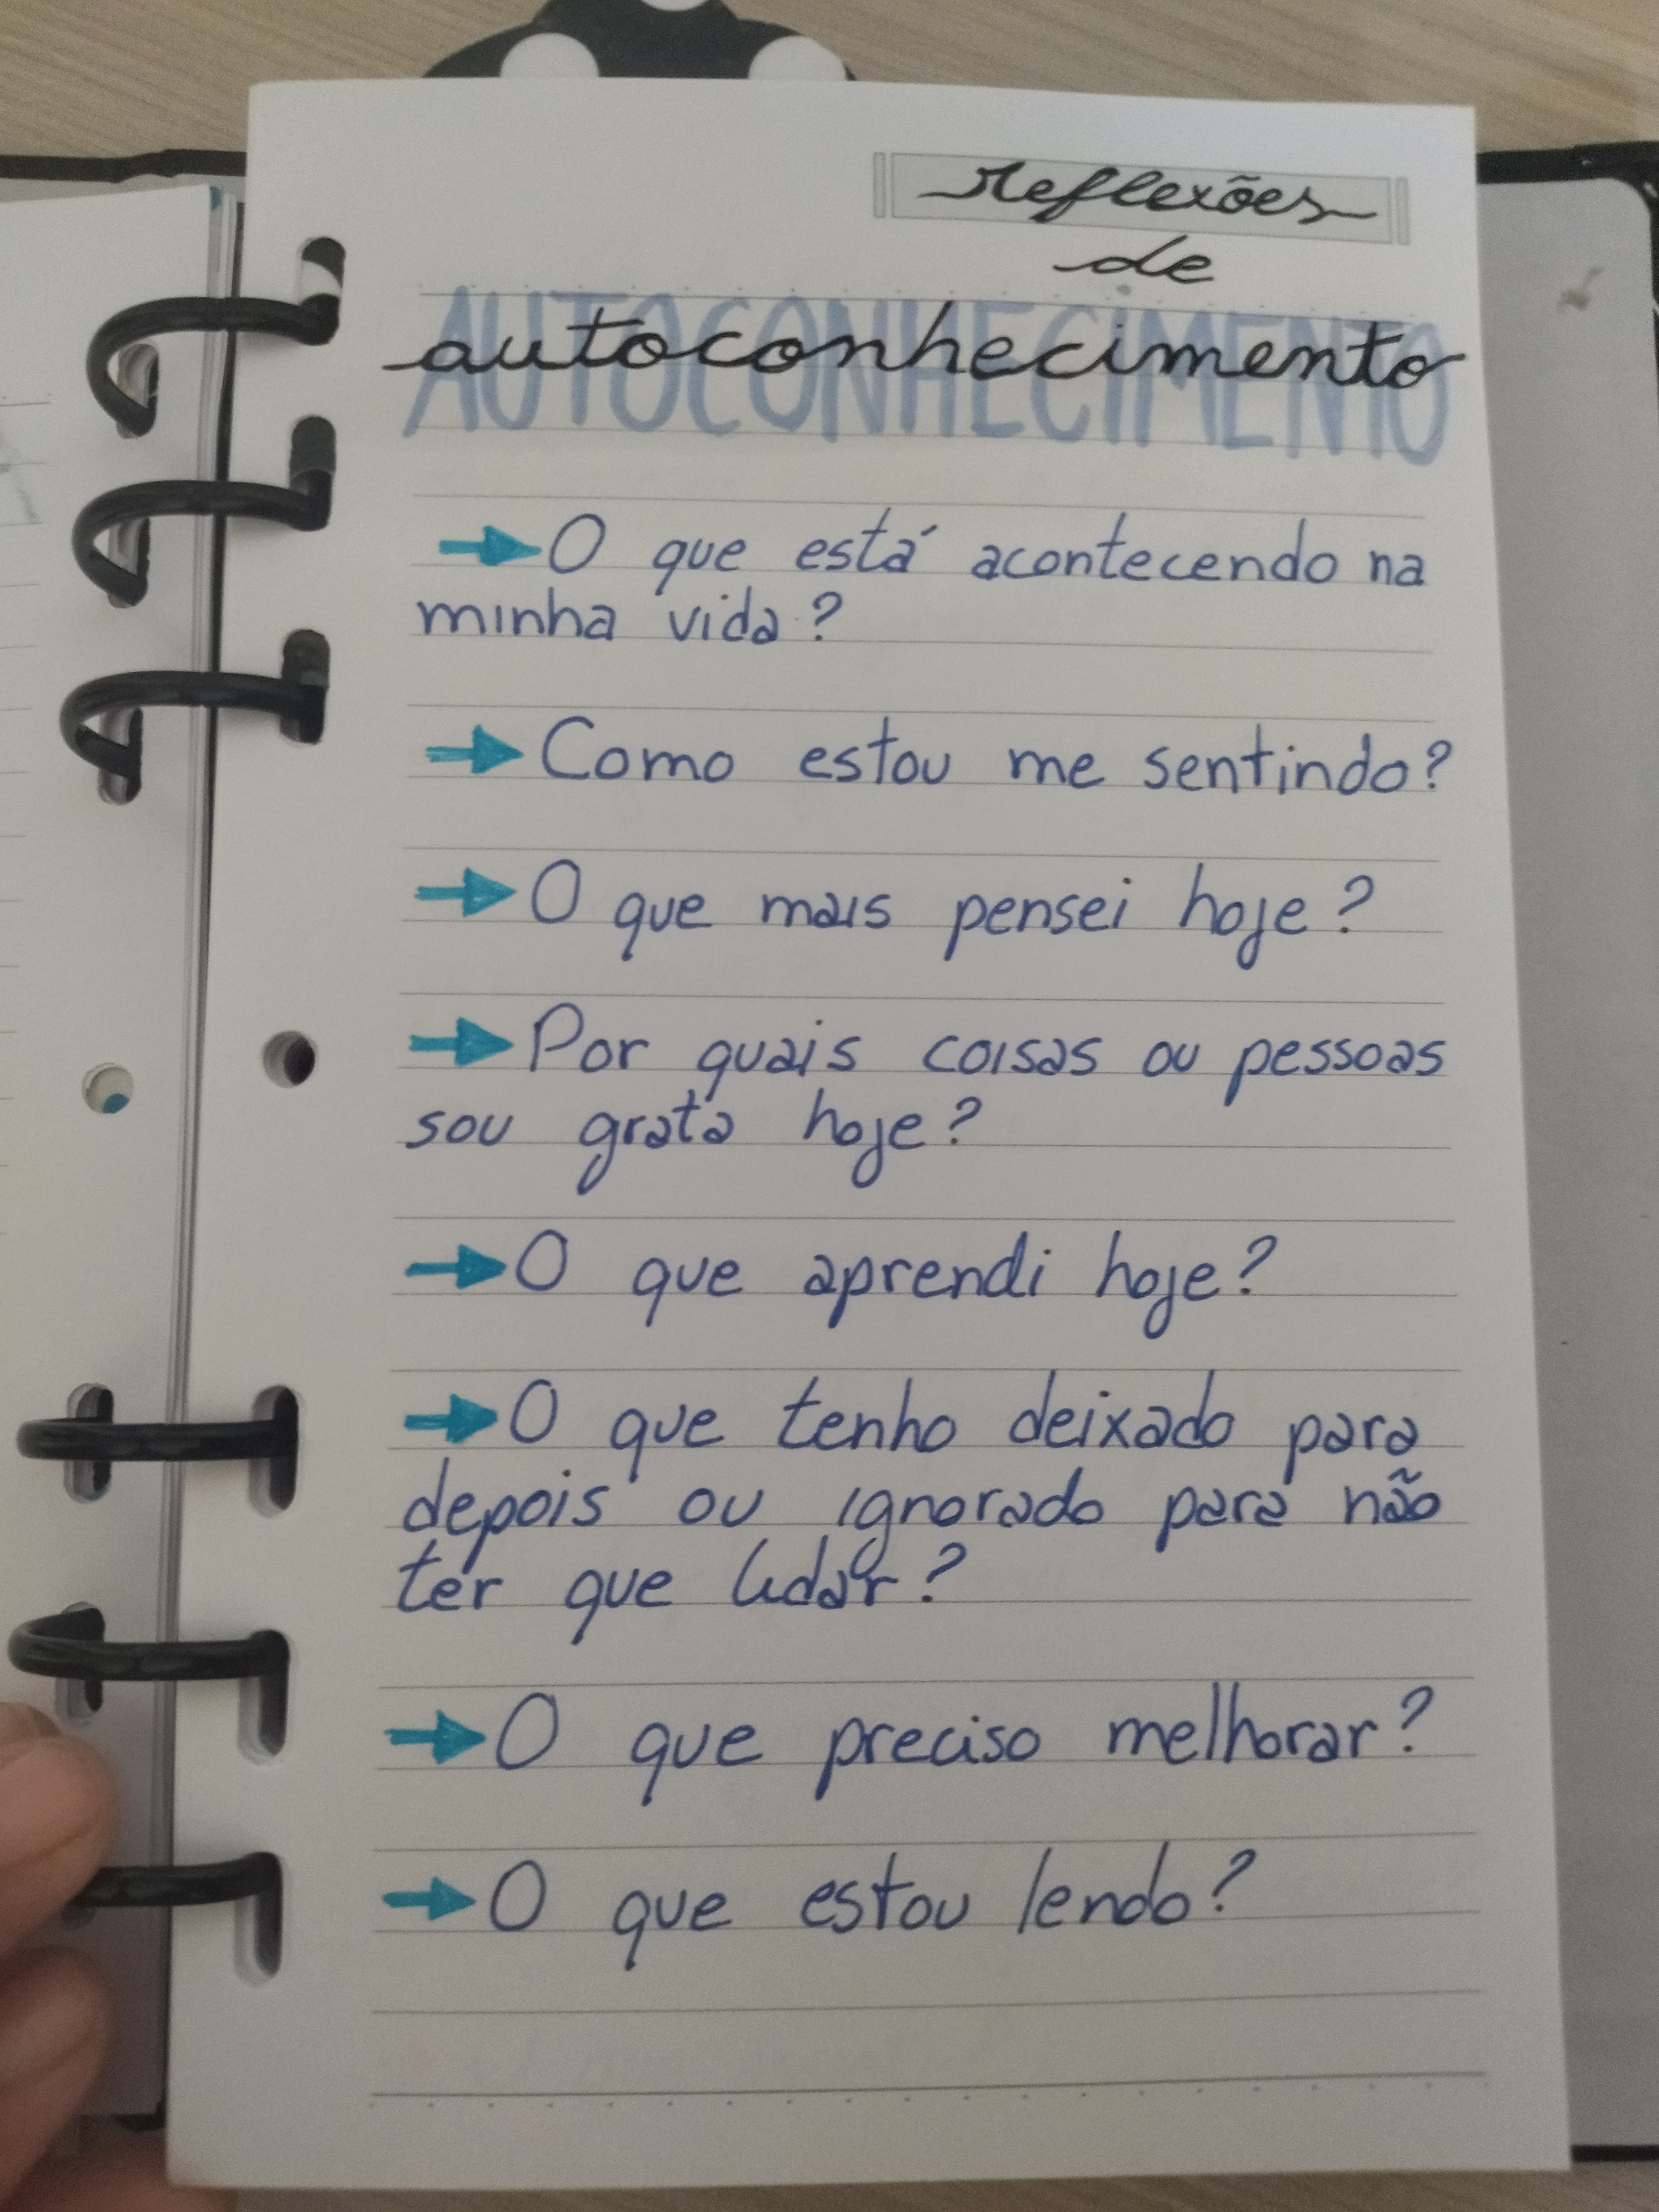 reflexões
de
AUTOCONHECIMENTO
autoconhecimento
→ O que está acontecendo na
minha vida?
→ Como estou me sentindo?
→ O que mais pensei hoje?
→ Por quais coisas ou pessoas
sou grata hoje?
→ O que aprendi hoje?
→ O que tenho deixado para
depois ou ignorado para não
ter que lidar?
→ O que preciso melhorar?
→ O que estou lendo?